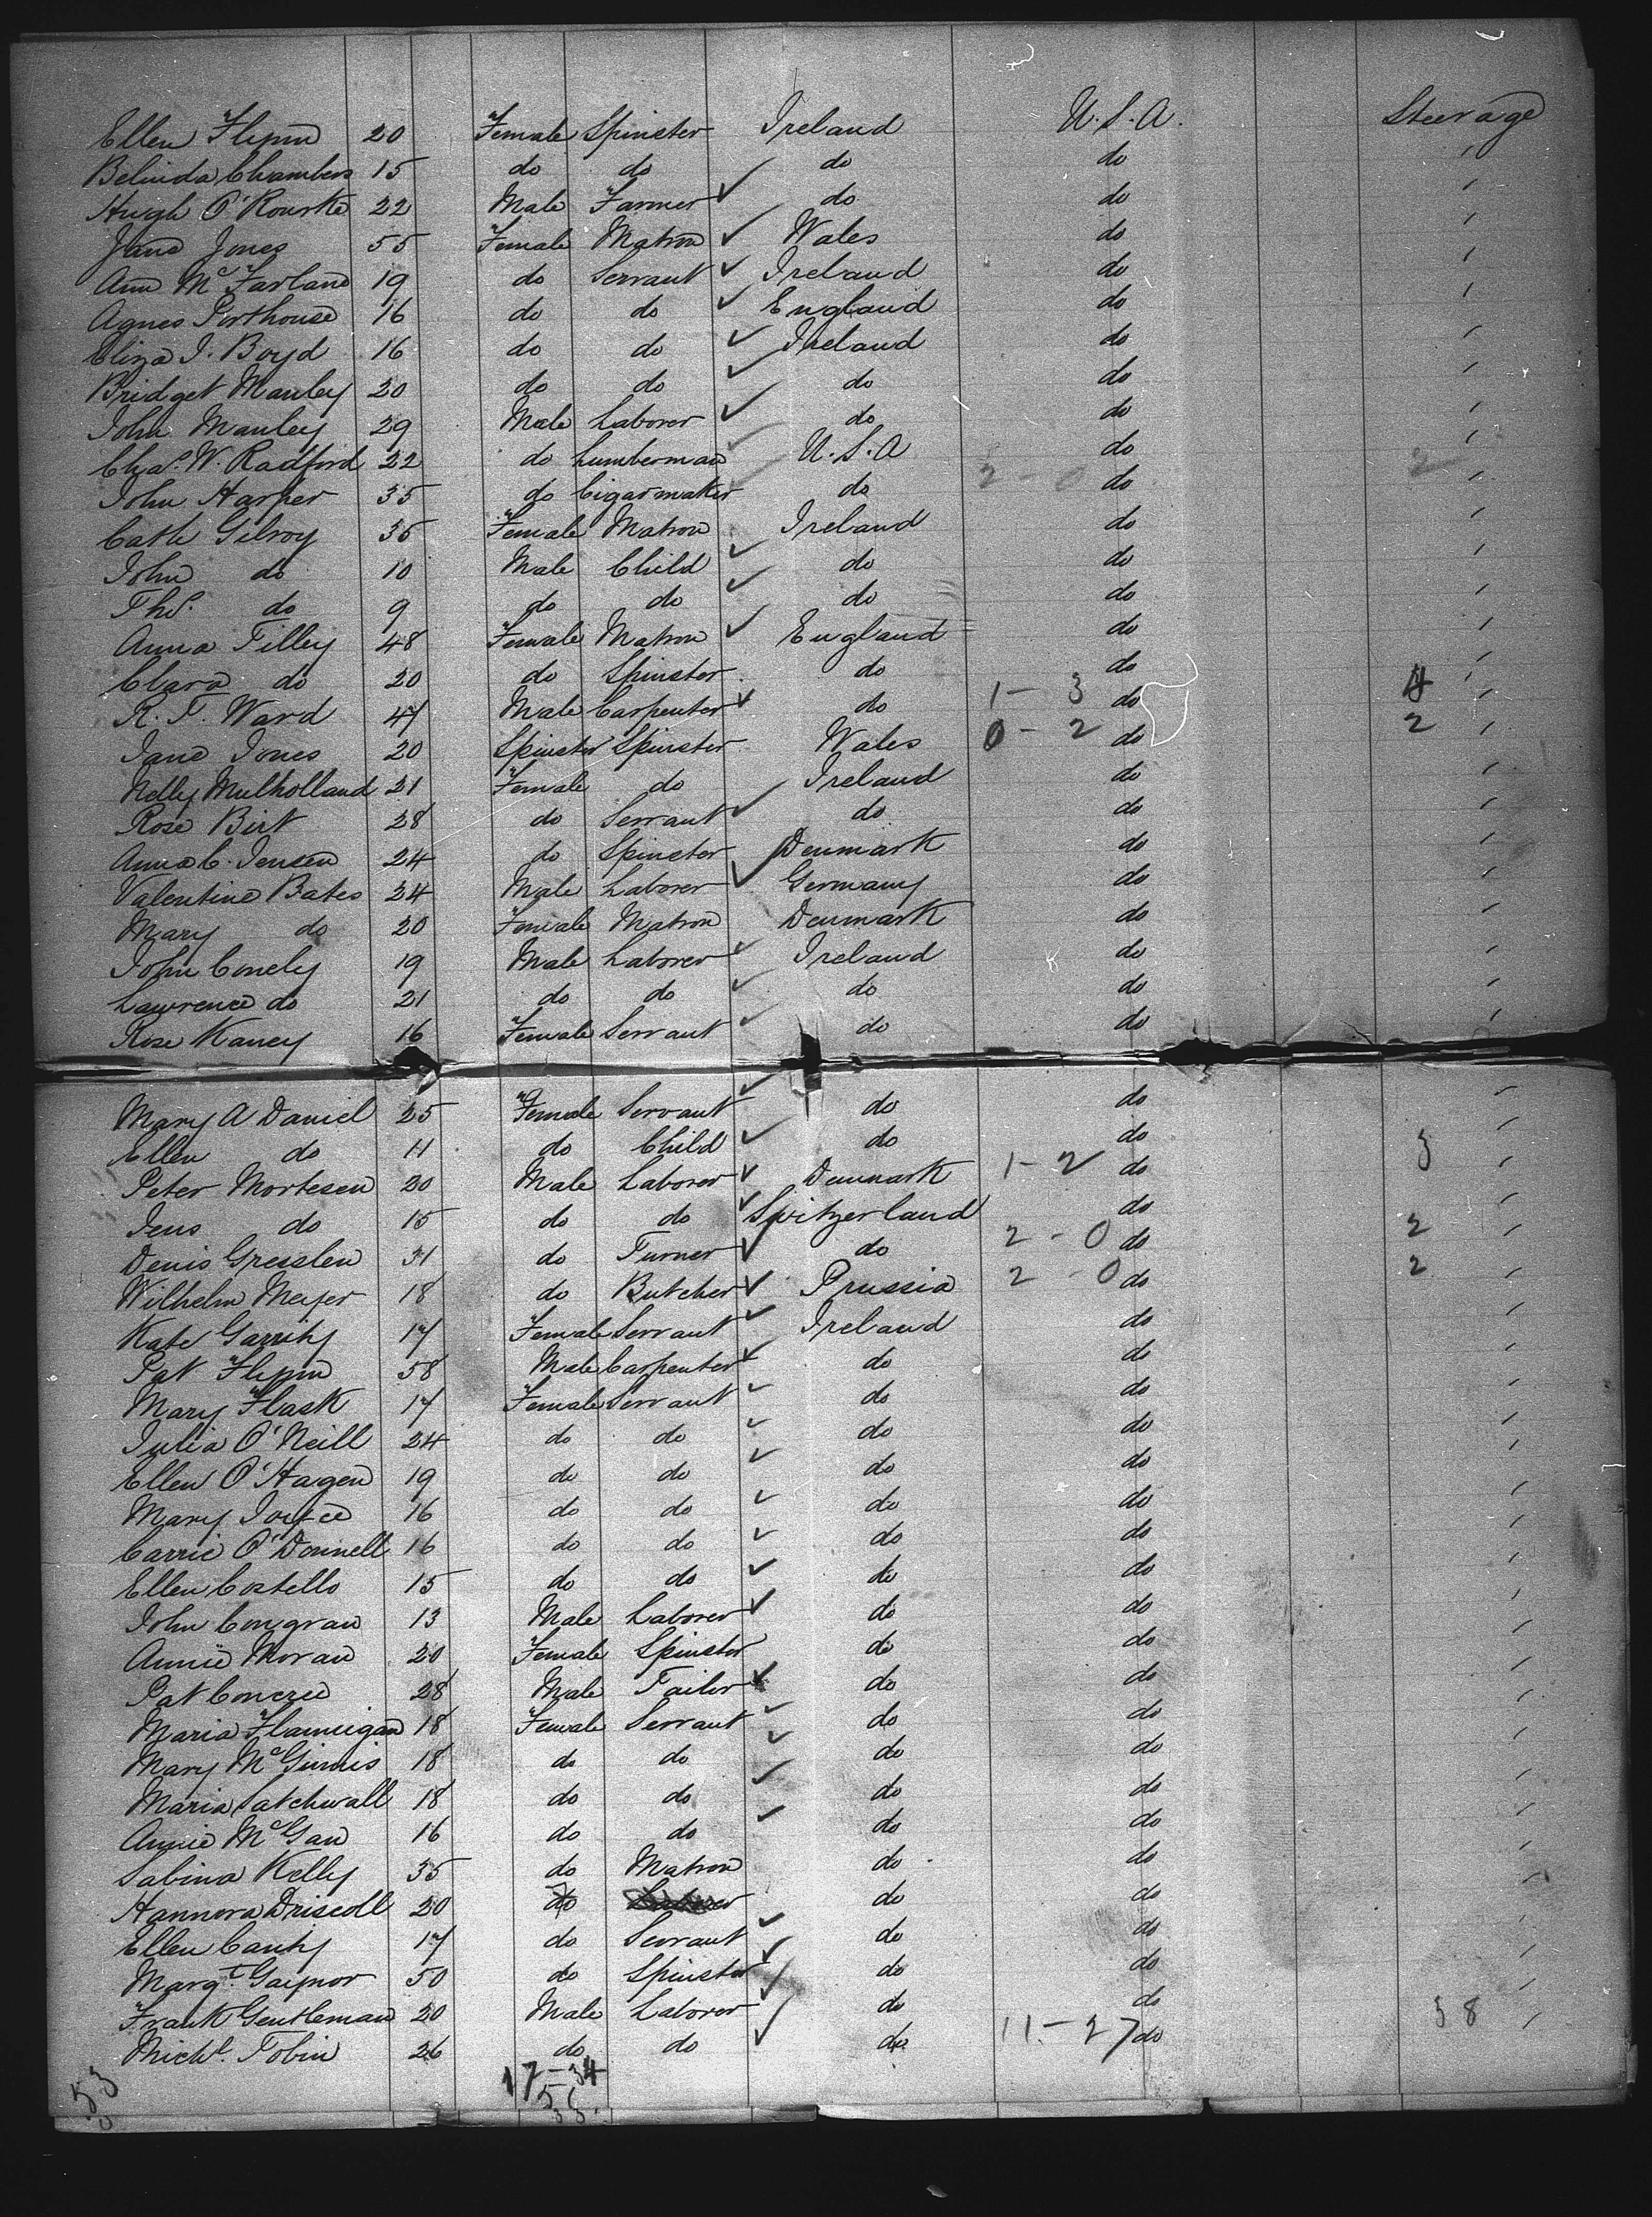 Ellen Flynn 20 Female Spinster Ireland U.S.A. Steerage
Belinda Chambers 15 do do do do
Hugh O'Rourke 22 Male Farmer do do
Jane Jones 55 Female Matron Wales do
Ann McFarland 19 do Servant Ireland do
Agnes Porthouse 16 do do England do
Eliza J. Boyd 16 do do Ireland do
Bridget Manley 20 do do do do
John Manley 29 Male Laborer do do
Chas. W. Radford 22 do Lumberman U.S.A do
John Harper 35 do Cigarmaker do 2 - 0 do 2
Cath Gilroy 35 Female Matron Ireland do
John do 10 Male Child do do
Thos. do 9 do do do do
Anna Tilley 48 Female Matron England do
Clara do 20 do Spinster do do
R. T. Ward 47 Male Carpenter do 1 - 3 do 4
Jane Jones 20 Spinster Spinster Wales 0 - 2 do 2
Nelly Mulholland 21 Female do Ireland do
Rose Birt 28 do Servant do do
Anna C. Jensen 24 do Spinster Denmark do
Valentine Bates 24 Male Laborer Germany do
Mary do 20 Female Matron Denmark do
John Conely 19 Male Laborer Ireland do
Lawrence do 21 do do do do
Rose Kaney 16 Female Servant do do
Mary A Daniel 25 Female Servant do do
Ellen do 11 do Child do do
Peter Mortesen 20 Male Laborer Denmark 1 - 2 do 3
Jens do 15 do do Switzerland do
Denis Gresslen 31 do Turner do 2 - 0 do 2
Wilhelm Meyer 18 do Butcher Prussia 2 - 0 do 2
Kate Garrity 17 Female Servant Ireland do
Pat Flynn 58 Male Carpenter do do
Mary Flask 17 Female Servant do do
Julia O'Neill 24 do do do do
Ellen O'Hagen 19 do do do do
Mary Joyce 16 do do do do
Carrie O'Donnell 16 do do do do
Ellen Costello 15 do do do do
John Congrau 13 Male Laborer do do
Annie Moran 20 Female Spinster do do
Pat 28 Male Tailor do do
Maria Flannigan 18 Female Servant do do
Mary McGinnis 18 do do do do
Maria Satchwall 18 do do do do
Annie McGan 16 do do do do
Sabina Kelly 35 do Matron do do
Hannora Driscoll 20 do Laborer do do
Ellen Canty 17 do Servant do do
Margt. Gaynor 50 do Spinster do do
Frank Gentleman 20 Male Laborer do do
Michl. Tobin 26 do do do 11 - 27 do 38
17 - 34
53